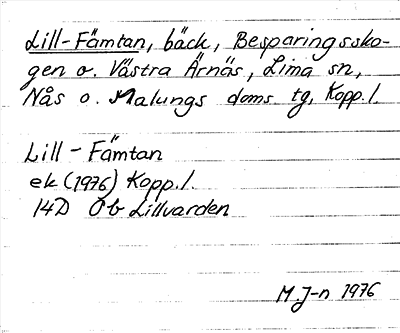 Lill-Fämtan, bäck, Besparingssko-
gen o. Västra Ärnäs, Lima sn,
Nås o. Malungs doms tg, Kopp. l.
Lill-Fämtan
ek (1976) Kopp. l.
14D Ob Lillvarden
M. J-n 1976